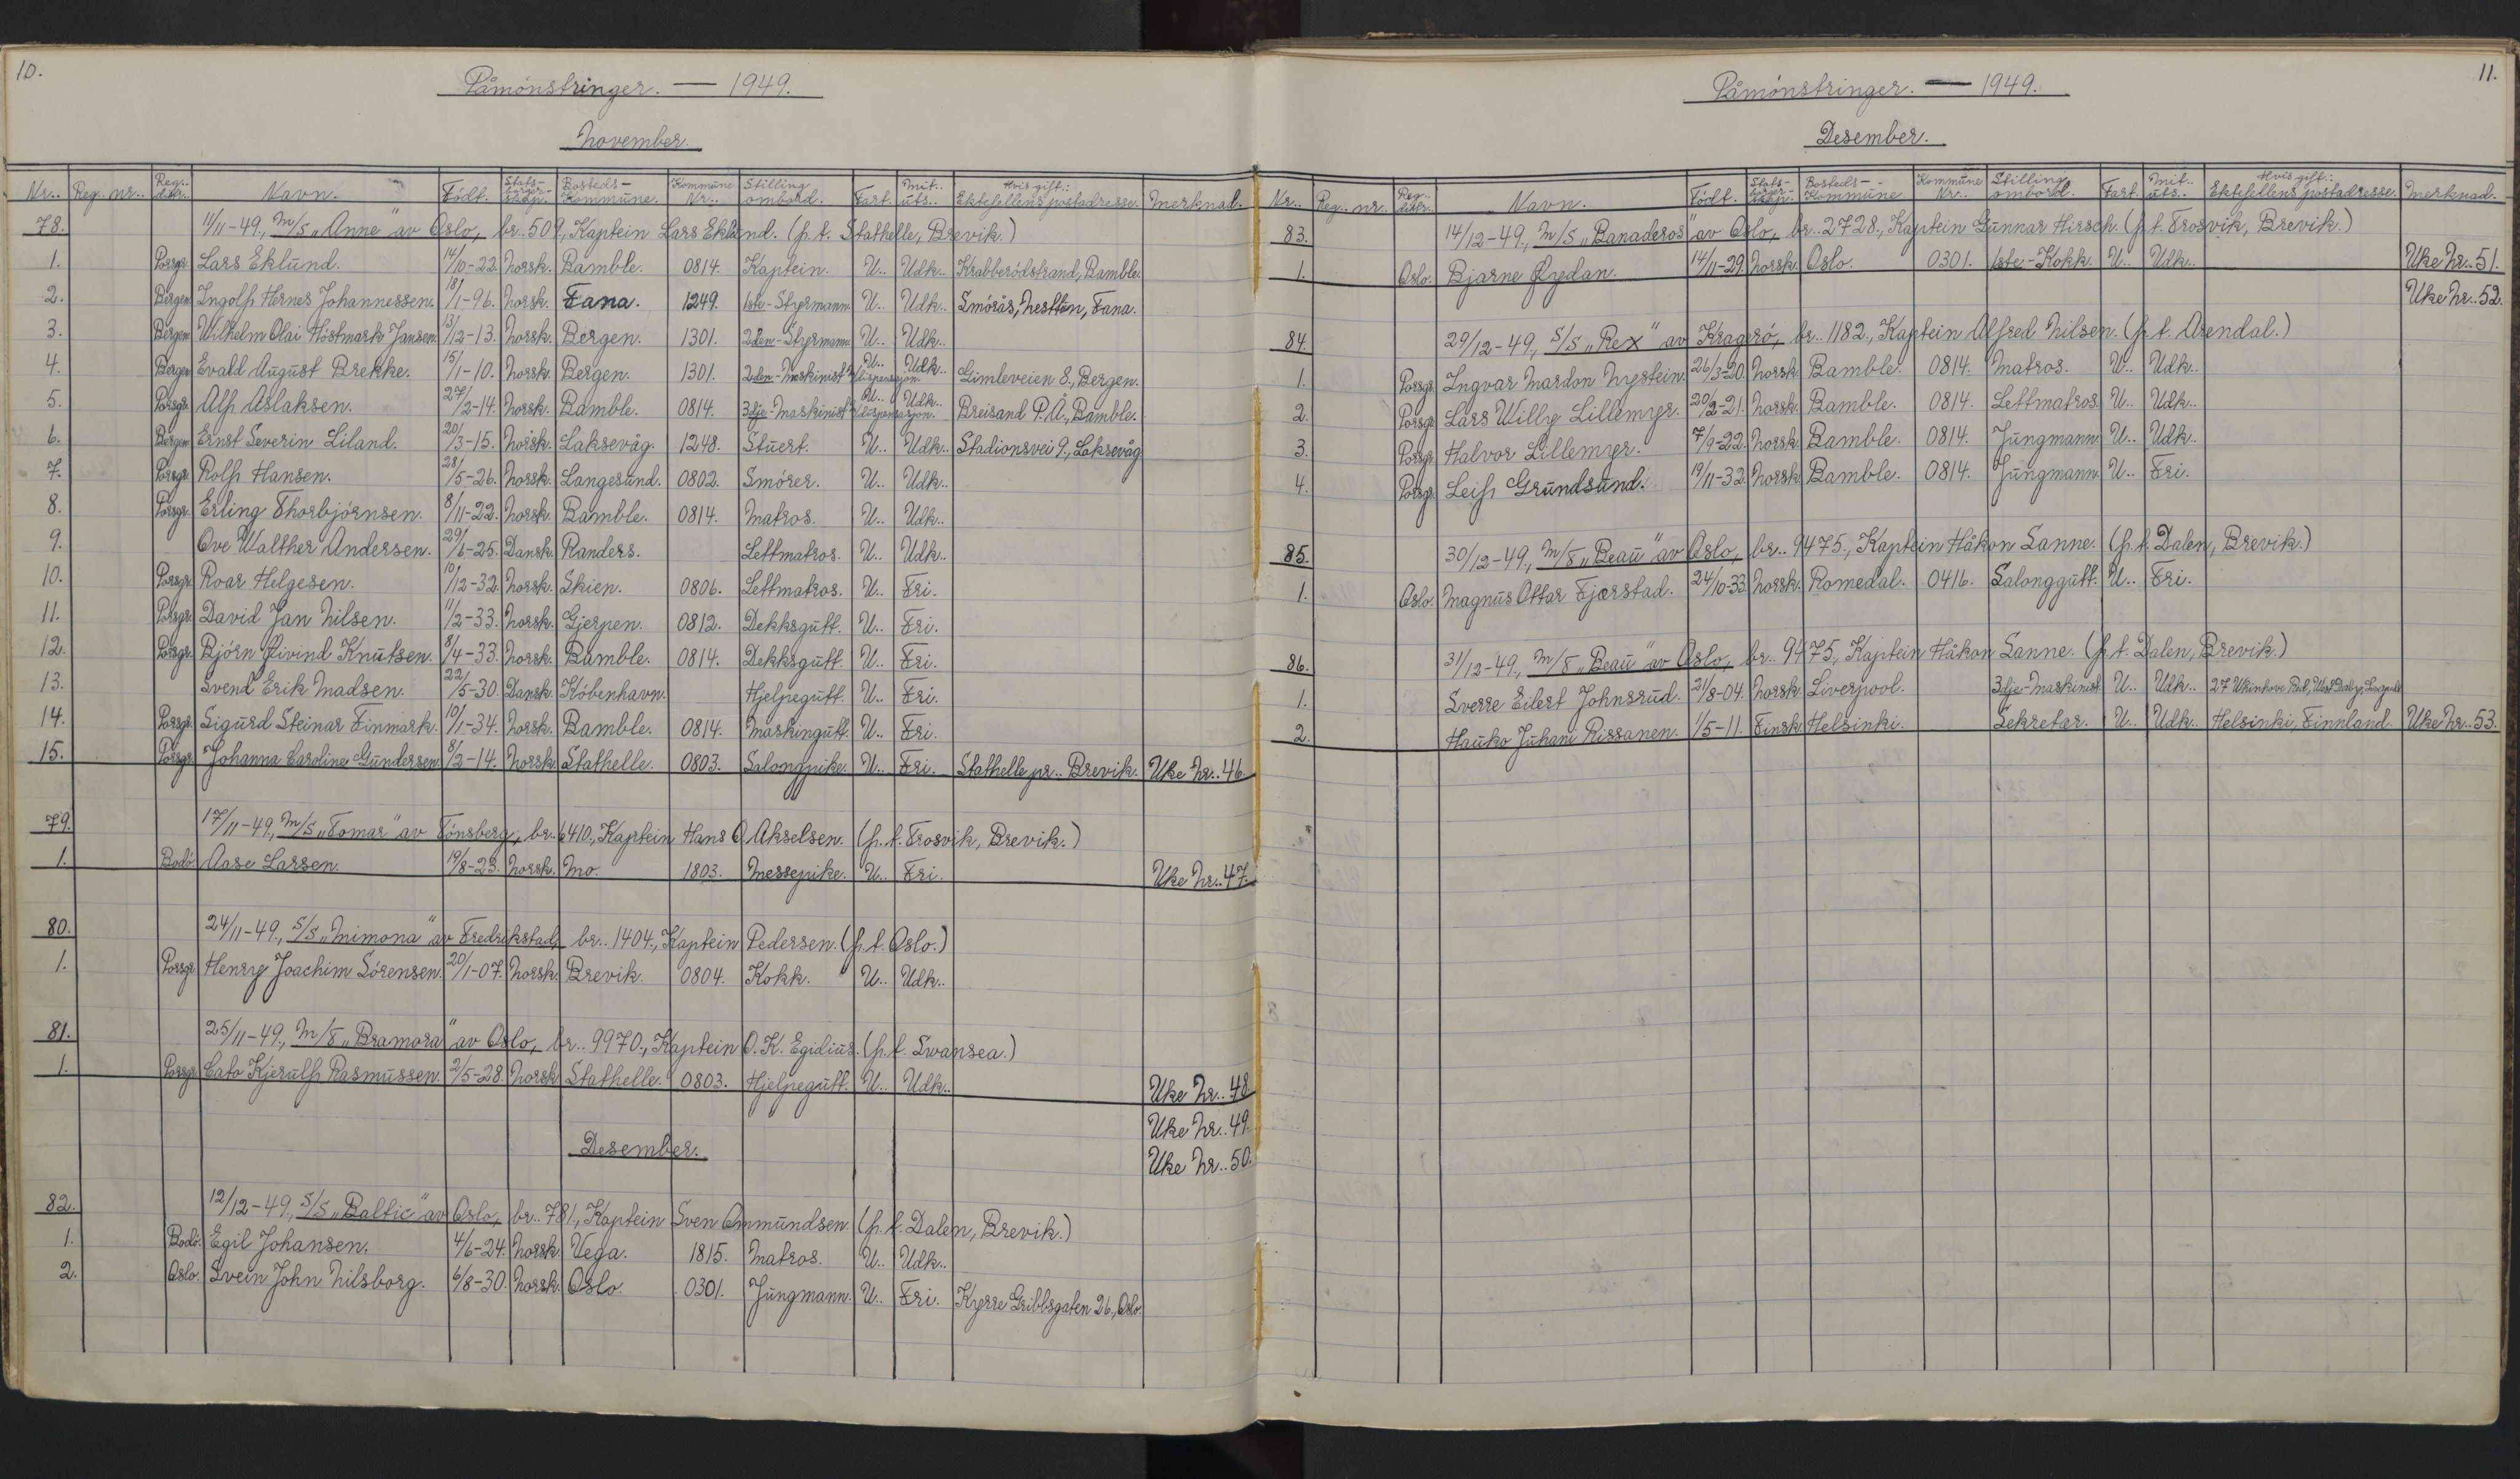 10.
Påmönstringer. — 1949.
November.
Nr.. Reg. nr.. Reg.. distr.. Navn. Födt. Stats-borger-skap. Bosteds-Kommune. Kommune Nr.. Stilling ombord. Fart. Mit.. uts.. Hvis gift.: Ektefellens postadresse. Merknad.
78. 11/11-49., M/S „Anne" av Oslo, br. 509, Kaptein Lars Eklund. (p.t. Stathelle, Brevik.)
1. Porsgr. Lars Eklund. 14/10-22. Norsk. Bamble. 0814. Kaptein. U.. Udk.. Krabberödstrand, Bamble.
2. Bergen. Ingolf Hernes Johannessen. 18/1-96. Norsk. Fana. 1249. 1ste-Styrmann. U.. Udk.. Smörås, Nesttun, Fana.
3. Bergen. Wilhelm Olai Höstmark Jansen. 13/12-13. Norsk. Bergen. 1301. 2den-Styrmann. U.. Udk..
4. Bergen. Evald August Brekke. 15/1-10. Norsk. Bergen. 1301. 2den-Maskinist dispensasjon. U.. Udk.. Gimleveien 8., Bergen.
5. Porsgr. Alf Aslaksen. 27/2-14. Norsk. Bamble. 0814. 3dje-Maskinist dispensasjon. U.. Udk.. Breisand P.Å., Bamble.
6. Bergen. Ernst Severin Liland. 20/3-15. Norsk. Laksevåg. 1248. Stuert. U.. Udk.. Stadionsvei 9., Laksevåg.
7. Porsgr. Rolf Hansen. 28/5-26. Norsk. Langesund. 0802. Smörer. U.. Udk..
8. Porsgr. Erling Thorbjörnsen. 8/11-22. Norsk. Bamble. 0814. Matros. U.. Udk..
9. Ove Walther Andersen. 29/6-25. Dansk. Randers. Lettmatros. U.. Udk..
10. Porsgr. Roar Helgesen. 10/12-32. Norsk. Skien. 0806. Lettmatros. U.. Fri.
11. Porsgr. David Jan Nilsen. 11/2-33. Norsk. Gjerpen. 0812. Dekksgutt. U.. Fri.
12. Porsgr. Björn Øivind Knutsen. 8/4-33. Norsk. Bamble. 0814. Dekksgutt. U.. Fri.
13. Svend Erik Madsen. 22/5-30. Dansk. Köbenhavn. Hjelpegutt. U.. Fri.
14. Porsgr. Sigurd Steinar Finmark. 10/1-34. Norsk. Bamble. 0814. Maskingutt. U.. Fri.
15. Porsgr. Johanna Caroline Gundersen. 8/2-14. Norsk. Stathelle. 0803. Salongpike. U.. Fri. Stathelle pr.. Brevik. Uke Nr..46.
79. 17/11-49., M/S „Tomar" av Tönsberg, br. 6410., Kaptein Hans O Akselsen. (p.t. Trosvik, Brevik.)
1. Bodö. Aase Larsen. 19/8-23. Norsk. Mo. 1803. Messepike. U.. Fri. Uke Nr..47.
80. 24/11-49., S/S „Mimona" av Fredrikstad, br.. 1404., Kaptein Pedersen. (p.t. Oslo.)
1. Porsgr. Henry Joachim Sörensen. 20/1-07. Norsk. Brevik. 0804. Kokk. U.. Udk..
81. 25/11-49., M/T „Bramora" av Oslo, br.. 9970., Kaptein O. K. Egidius. (p.t. Swansea.)
1. Porsgr. Cato Kjerulf Rasmussen. 2/5-28. Norsk. Stathelle. 0803. Hjelpegutt. U.. Udk.. Uke Nr..48.
Uke Nr..49.
Desember.
Uke Nr..50.
82. 12/12-49., S/S „Baltic" av Oslo, br.. 781., Kaptein Sven Ommundsen. (p.t. Dalen, Brevik.)
1. Bodö. Egil Johansen. 4/6-24. Norsk. Vega. 1815. Matros. U.. Udk..
2. Oslo. Svein John Nilsborg. 6/8-30. Norsk. Oslo. 0301. Jungmann. U.. Fri. Kyrre Gribbsgaten 26., Oslo.
11.
Påmönstringer. — 1949.
Desember.
Nr.. Reg.. nr.. Reg.. distr.. Navn. Födt. Stats-borger-skap. Bosteds-Kommune Kommune Nr.. Stilling ombord. Fart. Mit.. uts.. Hvis gift.: Ektefellens postadresse. Merknad.
83. 14/12-49., M/S „Banaderos" av Oslo, br.. 2728., Kaptein Gunnar Hirsch. (p.t. Trosvik, Brevik.)
1. Oslo. Bjarne Øydan. 14/11-29. Norsk. Oslo. 0301. 1ste-Kokk. U.. Udk.. Uke Nr..51.
Uke Nr..52.
84. 29/12-49., S/S „Rex" av Kragerö, br.. 1182., Kaptein Alfred Nilsen. (p.t. Arendal.)
1. Porsgr. Ingvar Mardon Nystein. 26/3-20. Norsk. Bamble. 0814. Matros. U.. Udk..
2. Porsgr. Lars Willy Lillemyr. 20/2-21. Norsk. Bamble. 0814. Lettmatros. U.. Udk..
3. Porsgr. Halvor Lillemyr. 7/9-22. Norsk. Bamble. 0814. Jungmann. U.. Udk..
4. Porsgr. Leif Grundsund. 19/11-32. Norsk. Bamble. 0814. Jungmann. U.. Fri.
85. 30/12-49., M/T „Beau" av Oslo, br.. 9475., Kaptein Håkon Sanne. (p.t. Dalen, Brevik.)
1. Oslo. Magnus Ottar Fjærstad. 24/10-33. Norsk. Romedal. 0416. Salonggutt. U.. Fri.
86. 31/12-49., M/T „Beau" av Oslo, br.. 9475., Kaptein Håkon Sanne. (p.t. Dalen, Brevik.)
1. Sverre Eilert Johnsrud. 21/8-04. Norsk. Liverpool. 3dje-Maskinist. U.. Udk.. 27 Road, West Derby, Liverpool.
2. Hauko Juhani Rissanen. 1/5-11. Finsk. Helsinki. Sekretær. U.. Udk.. Helsinki, Finnland. Uke Nr..53.